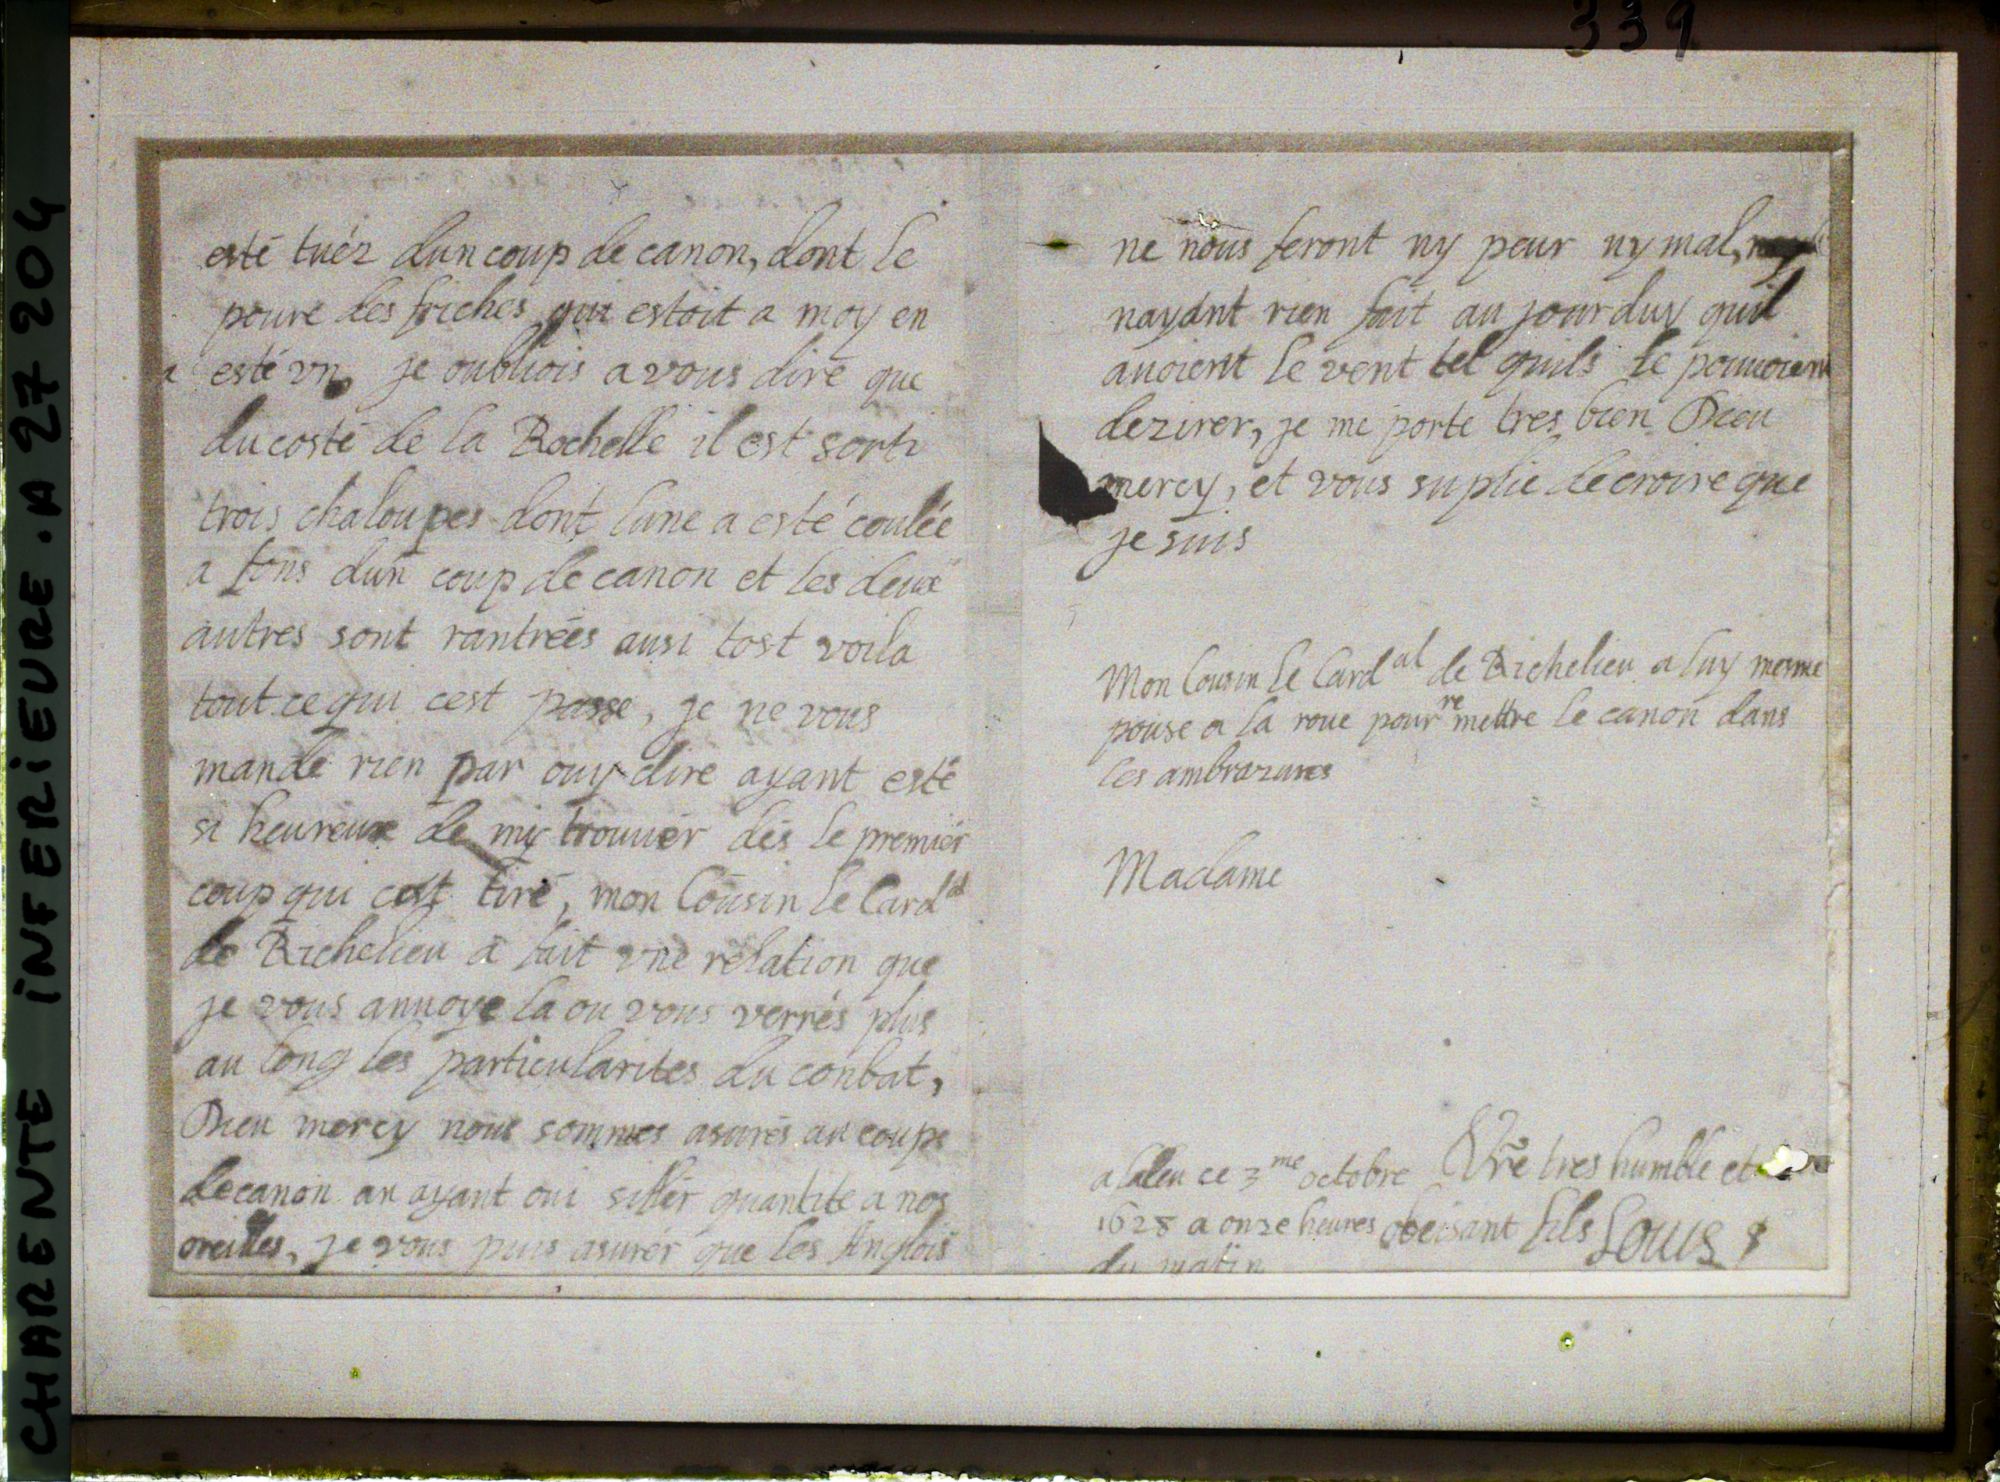 339
CHARENTE INFERIEURE . A 27 204
esté tuéz dun coup de canon, dont le
poure des friches qui estoit a moy en
a esté vn, je oubliois a vous dire que
du costé de la Rochelle il est sorti
trois chaloupes dont lune a esté coulée
a fons dun coup de canon et les deux
autres sont rantrées ausi tost voila
tout ce qui cest passe, je ne vous
mande rien par ouy dire ayant esté
si heureux de my trouver dés le premiér
coup qui cest tiré, mon Cousin le Card al
de Richelieu a fait vne relation que
je vous annoye la ou vous verrés plus
au long les particularites du conbat,
Dieu mercy nous sommes asurés au coups
de canon an ayant oui siflér quantite a nos
oreilles, je vous puis asurér que les Anglois
ne nous feront ny peur ny mal,
nayant rien fait au jourduy quil
auoient le vent tel quils le pouuoient
dezirer, je me porte tres bien Dieu
mercy, et vous suplie de croire que
je suis
Mon Cousin le Card al de Richelieu a luy mesme
pousé a la roue pour remettre le canon dans
les ambrazures
Madame
a Laleu ce 3 me octobre
1628 a onze heures
du matin
Vre tres humble et
obeisant fils Louis